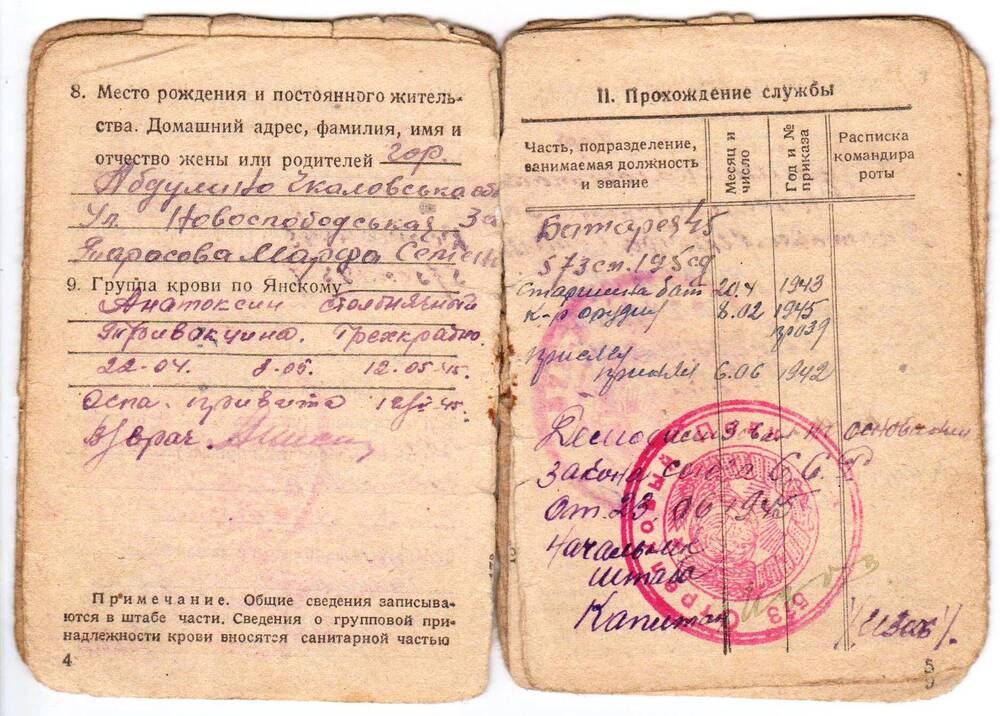 8. Место рождения и постоянного житель-
ства. Домашний адрес, фамилия, имя и
отчество жены или родителей гор.
Абдулино Чкаловська обл
Ул. Новослободськая
Тарасова Марфа Семен
9. Группа крови по Янскому
Анатоксин столбнячный
Тривакцина. Трехкратно.
22-04. 8-05. 12.05.45.
оспа. привита
Врач.
Примечание. Общие сведения записыва-
ются в штабе части. Сведения о групповой при-
надлежности крови вносятся санитарной частью
4
II. Прохождение службы
Часть, подразделение,
занимаемая должность
и звание
Месяц и
число
Год и №
приказа
Расписка
командира
роты
Батарея 45
573 сп. 195 сд
старшина бат 20.4 1943
к-р орудия 8.02 1945
присягу
принял 6.06 1942
Демобилизован на основании
Закона союза С.С.Р
от 23.06 1945
Начальник
штаба
Капитан
5